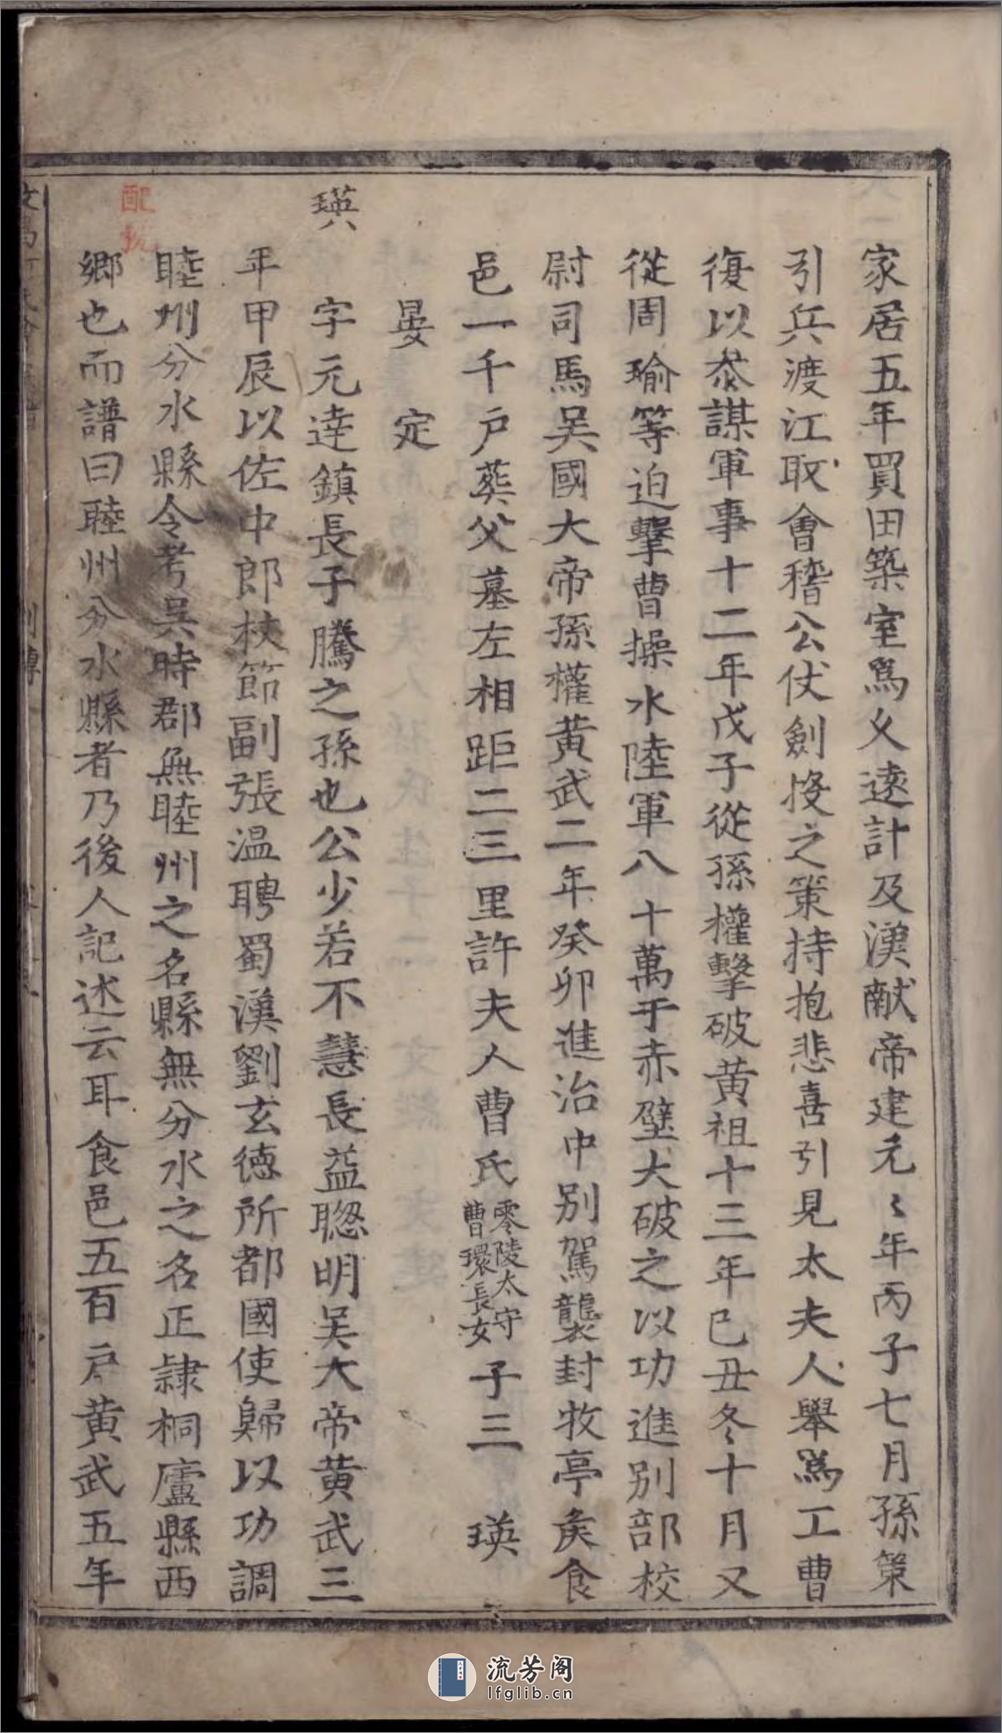 家居五年買田築室爲久遠計及漢献帝建元〻年丙子七月孫策
引兵渡江取會稽公仗劍投之策持抱悲喜引見太夫人舉爲工曹
復以叅謀軍事十二年戊子從孫權擊破黄祖十三年已丑冬十月又
從周瑜等迫擊曹操水陸軍八十萬于赤壁大破之以功進别部校
尉司馬吴國大帝孫權黄武二年癸卯進治中别駕襲封牧亭矦食
邑一千戸葬父墓左相距二三里許夫人曹氏零陵太守曹環長女子三 瑛
晏 定
瑛 字元達鎮長子騰之孫也公少若不慧長益聦明吴大帝黄武三
年甲辰以佐中郎杖節副張温聘蜀漢劉玄徳所都國使歸以功調
睦州分水縣令考吴時郡無睦州之名縣無分水之名正隷桐廬縣西
鄉也而譜曰睦州分水縣者乃後人記述云耳食邑五百戸黄武五年
配
流芳阁
lfglib.cn